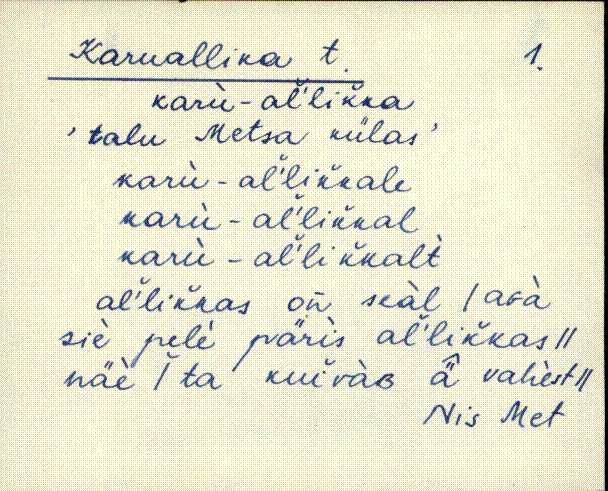 Karuallika t. 1.
karù-al̆'lik̆ka
'talu Metsa külas'
karù-al̆'lik̆kale
karù-al̆'lik̆kal
karù-al̆'lik̆kalt̀
al̆'lik̆kas on̆ seàl / avà
siè pelè pärìs al̆'lik̆kas //
näè / ta kuivàв ä̂ vahèst //
Nis Met